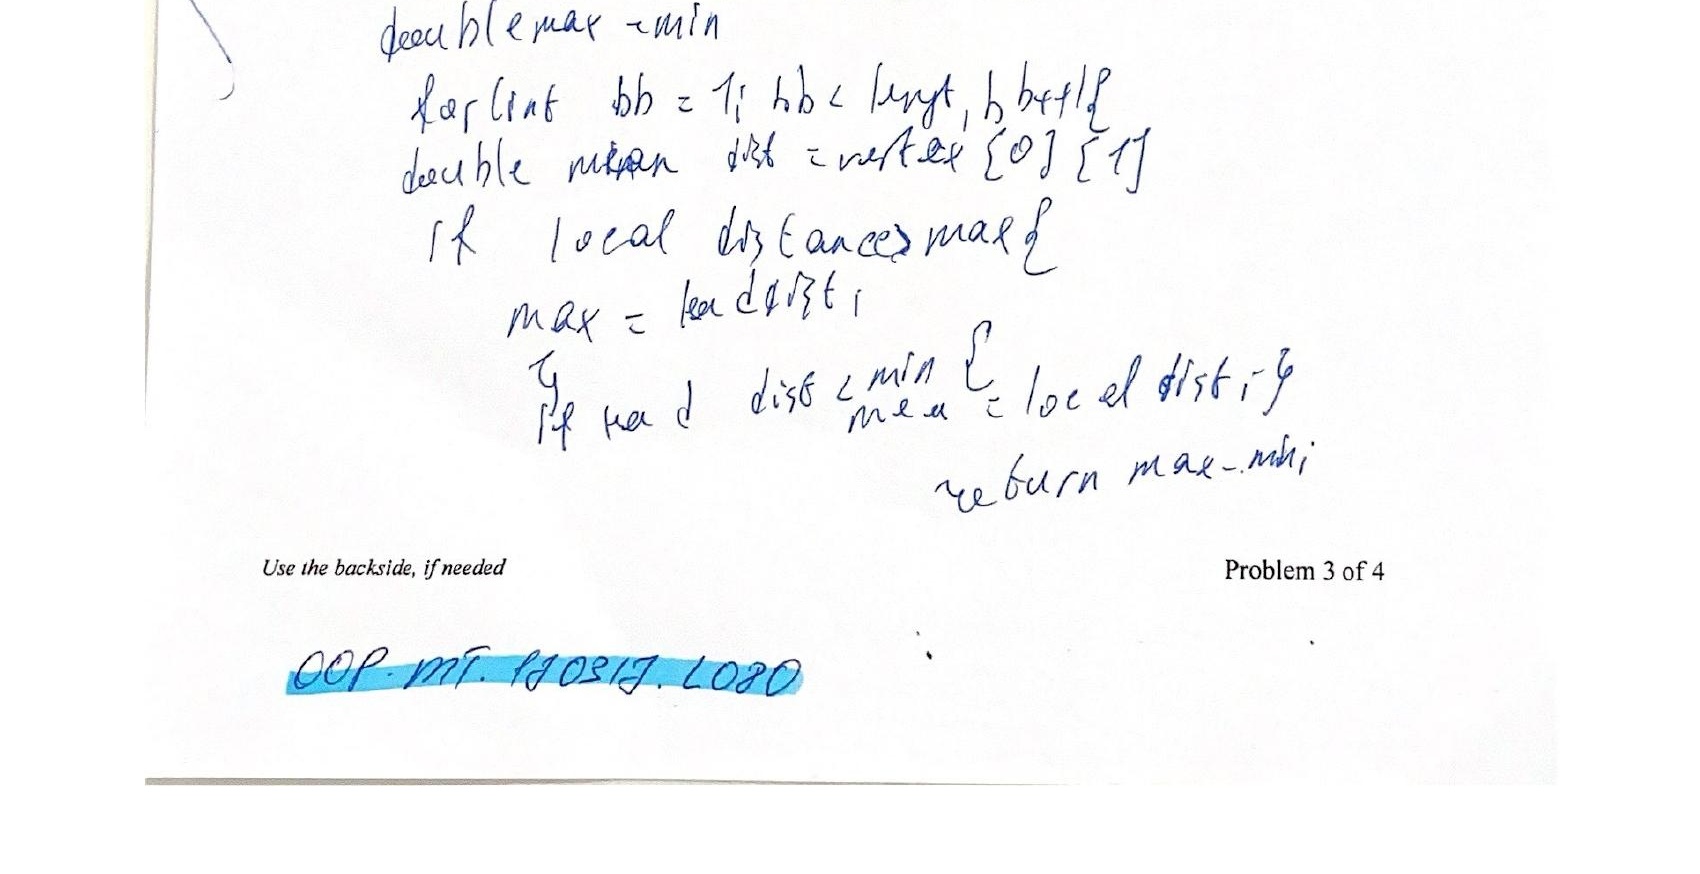 double max = min
for(int bb = 1; bb < lengt, bb++){
double mean dist = vertex [0] [1]
if local distance > max{
max = dist;
}
if dist < min {
= local dist; }
return max - min;
Use the backside, if needed
Problem 3 of 4
OOP. MT. L080